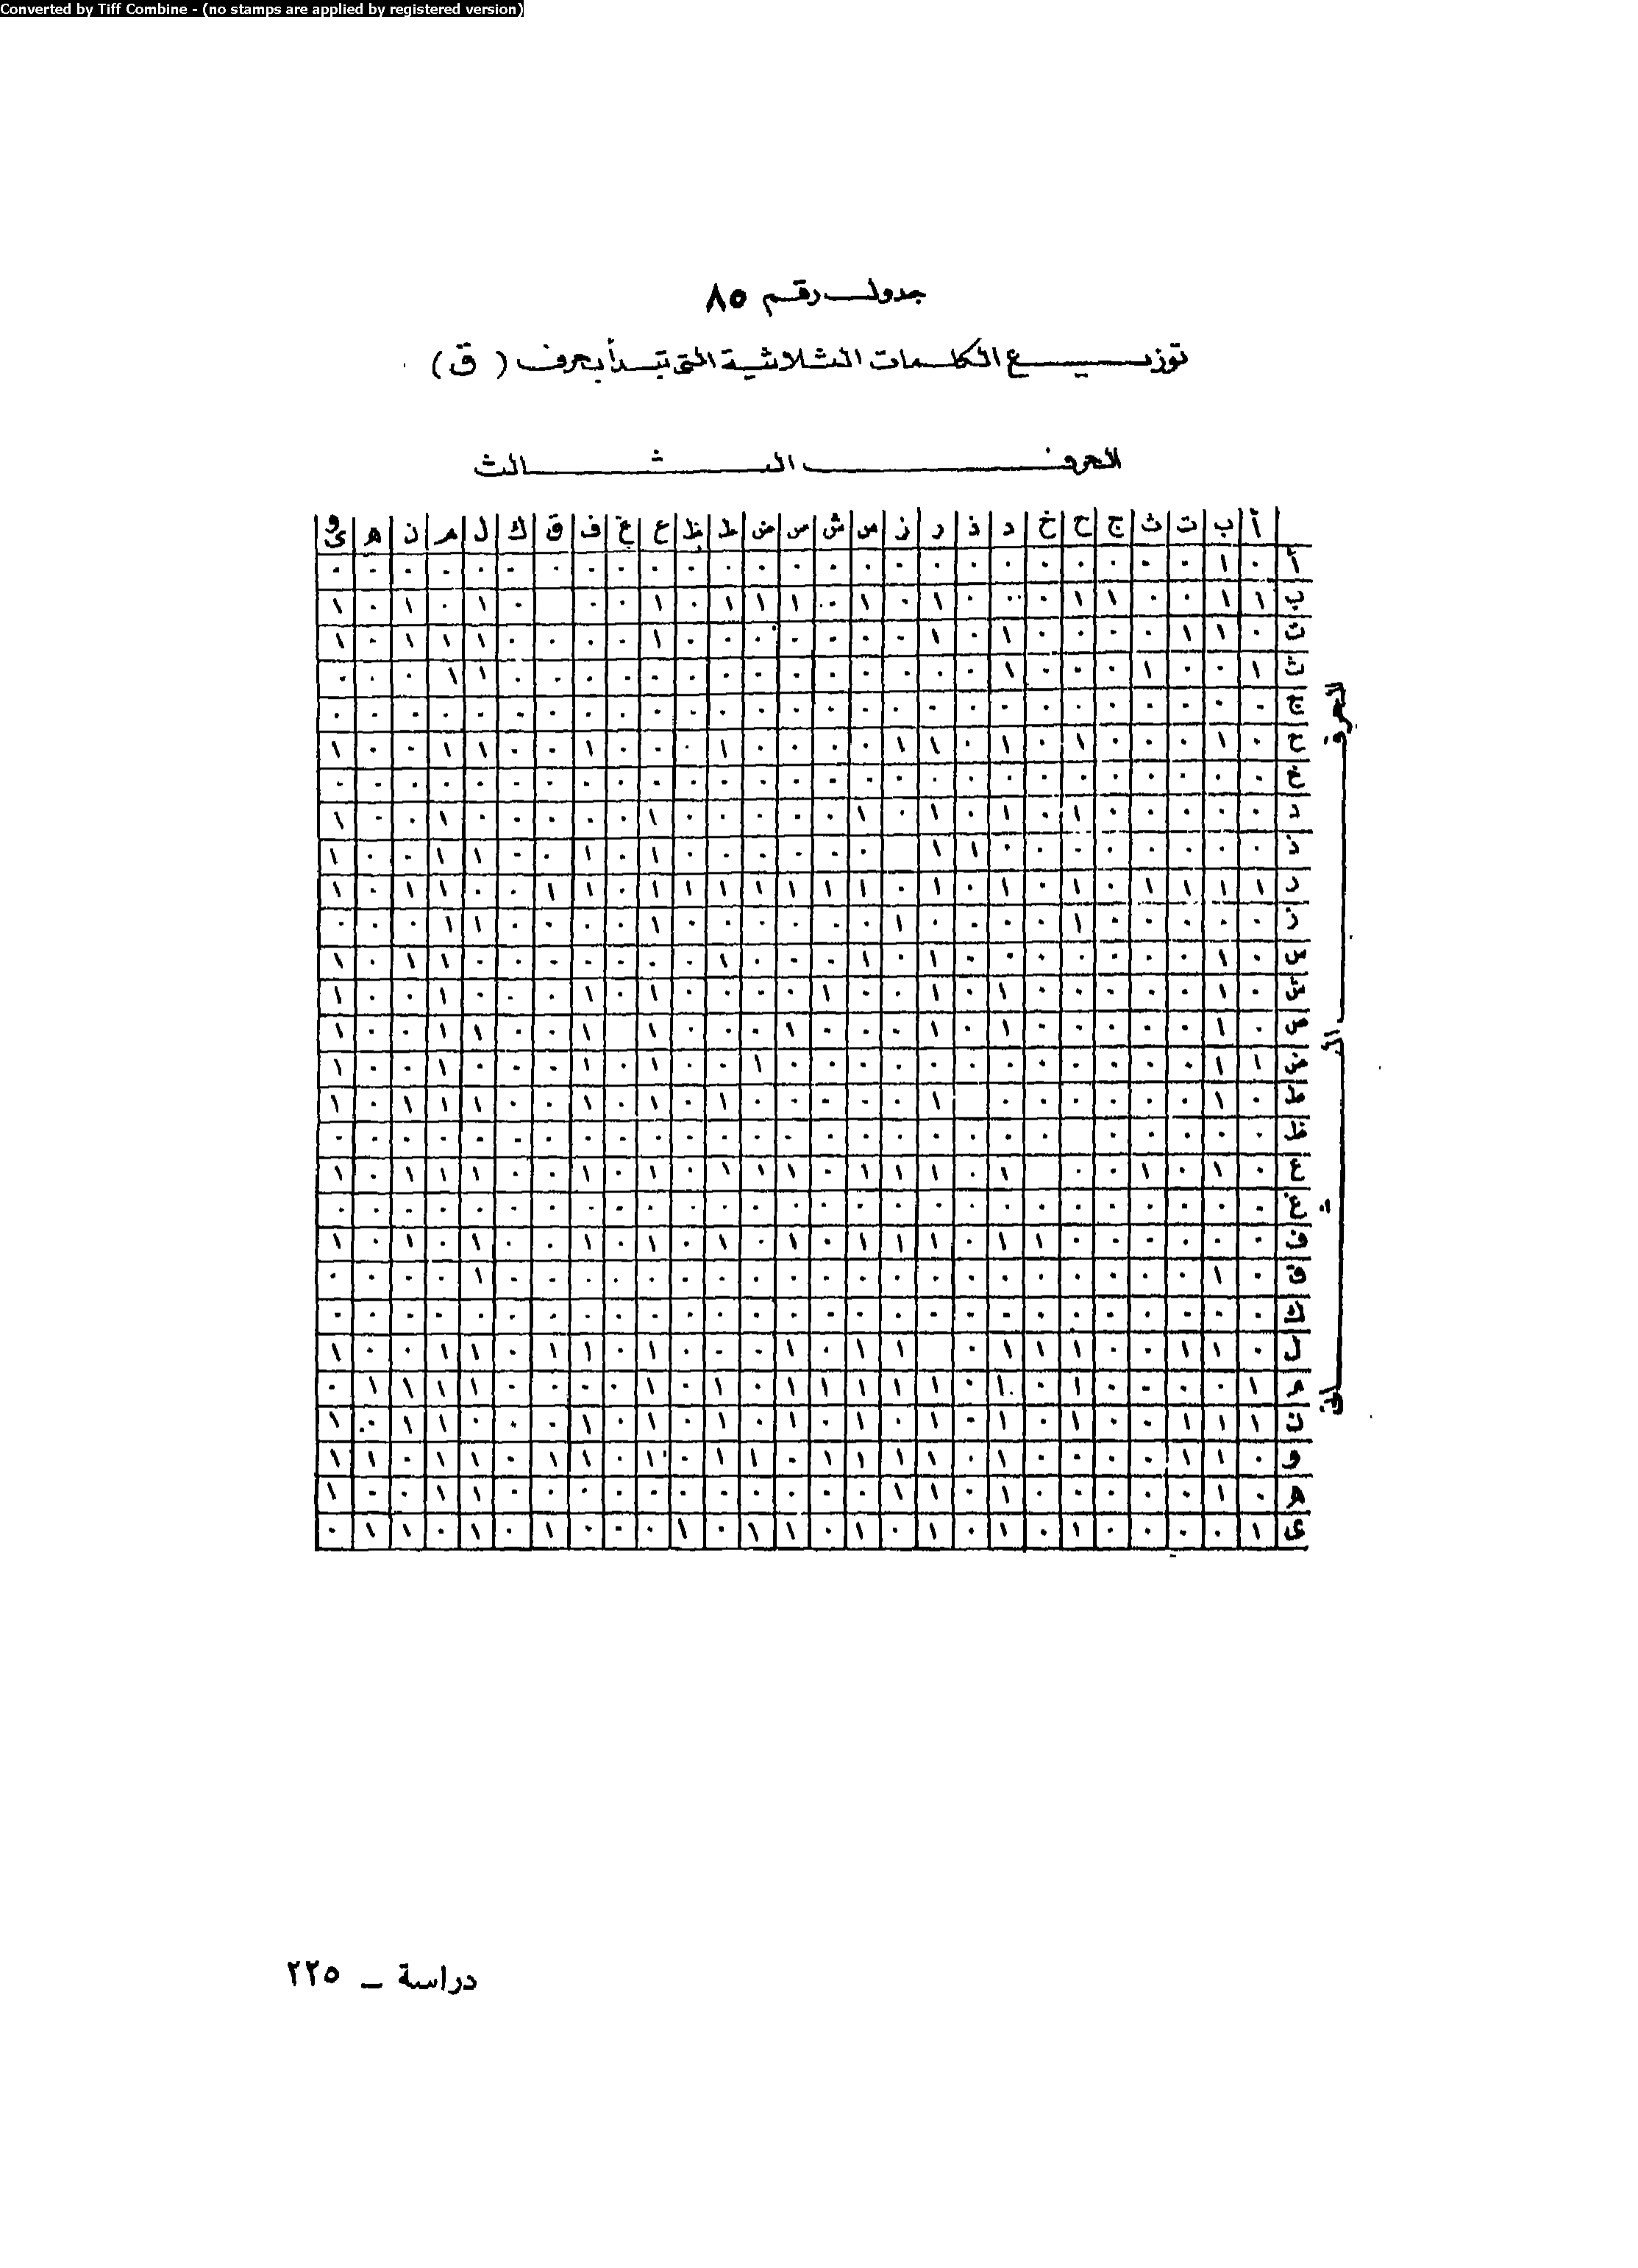 Converted by Tiff Combine - (no stamps are applied by registered version)
جدول رقم ٨٥
توزيع الكلمات الثلاثية التى تبدأ بحرف ( ق )
الحرف الثالث
أ ب ت ث ج ح خ د ذ ر ز س ش ص ض ط ظ ع غ ف ق ك ل م ن ه و ى
الحرف الثانى
أ ٠ ١ ٠ ٠ ٠ ٠ ٠ ٠ ٠ ٠ ٠ ٠ ٠ ٠ ٠ ٠ ٠ ٠ ٠ ٠ ٠ ٠ ٠ ٠ ٠ ٠ ٠
ب ١ ١ ٠ ٠ ١ ١ ٠ ٠ ٠ ١ ٠ ١ ٠ ١ ١ ١ ٠ ١ ٠ ٠ ٠ ١ ٠ ١ ٠ ١
ت ٠ ١ ١ ٠ ٠ ٠ ٠ ١ ٠ ١ ٠ ٠ ٠ ٠ ٠ ٠ ٠ ١ ٠ ٠ ٠ ٠ ١ ١ ١ ٠ ١
ث ١ ٠ ٠ ١ ٠ ٠ ٠ ١ ٠ ٠ ٠ ٠ ٠ ٠ ٠ ٠ ٠ ٠ ٠ ٠ ٠ ٠ ١ ١ ٠ ٠ ٠
ج ٠ ٠ ٠ ٠ ٠ ٠ ٠ ٠ ٠ ٠ ٠ ٠ ٠ ٠ ٠ ٠ ٠ ٠ ٠ ٠ ٠ ٠ ٠ ٠ ٠ ٠ ٠
ح ٠ ١ ٠ ٠ ٠ ١ ٠ ١ ٠ ١ ١ ٠ ٠ ٠ ٠ ١ ٠ ٠ ٠ ١ ٠ ٠ ١ ١ ٠ ٠ ١
خ ٠ ٠ ٠ ٠ ٠ ٠ ٠ ٠ ٠ ٠ ٠ ٠ ٠ ٠ ٠ ٠ ٠ ٠ ٠ ٠ ٠ ٠ ٠ ٠ ٠ ٠ ٠
د ٠ ٠ ٠ ٠ ٠ ١ ٠ ١ ٠ ١ ٠ ١ ٠ ٠ ٠ ٠ ٠ ١ ٠ ٠ ٠ ٠ ٠ ١ ٠ ٠ ١
ذ ٠ ٠ ٠ ٠ ٠ ٠ ٠ ٠ ١ ١ ٠ ٠ ٠ ٠ ٠ ٠ ١ ٠ ١ ٠ ٠ ١ ١ ٠ ٠ ١
ر ١ ١ ١ ١ ٠ ١ ٠ ١ ٠ ١ ٠ ١ ١ ١ ١ ١ ١ ١ ٠ ١ ١ ٠ ٠ ١ ١ ٠ ١
ز ٠ ٠ ٠ ٠ ٠ ١ ٠ ٠ ٠ ٠ ١ ٠ ٠ ٠ ٠ ٠ ٠ ١ ٠ ٠ ٠ ٠ ١ ١ ٠ ٠ ٠
س ٠ ١ ٠ ٠ ٠ ٠ ٠ ٠ ٠ ١ ٠ ١ ٠ ٠ ٠ ١ ٠ ٠ ٠ ٠ ٠ ٠ ٠ ١ ١ ٠ ١
ش ٠ ١ ٠ ٠ ٠ ٠ ٠ ١ ٠ ١ ٠ ٠ ١ ٠ ٠ ٠ ٠ ١ ٠ ١ ٠ ٠ ٠ ١ ٠ ٠ ١
ص ٠ ١ ٠ ٠ ٠ ٠ ٠ ١ ٠ ١ ٠ ٠ ٠ ١ ٠ ٠ ٠ ١ ١ ٠ ٠ ١ ١ ٠ ٠ ١
ض ١ ١ ٠ ٠ ٠ ٠ ٠ ٠ ٠ ٠ ٠ ٠ ٠ ٠ ١ ٠ ٠ ١ ٠ ١ ٠ ٠ ٠ ١ ٠ ٠ ١
ط ٠ ١ ٠ ٠ ٠ ٠ ٠ ٠ ١ ٠ ٠ ٠ ٠ ٠ ١ ٠ ١ ٠ ١ ٠ ٠ ١ ١ ١ ٠ ١
ظ ٠ ٠ ٠ ٠ ٠ ٠ ٠ ٠ ٠ ٠ ٠ ٠ ٠ ٠ ٠ ٠ ٠ ٠ ٠ ٠ ٠ ٠ ٠ ٠ ٠ ٠
ع ٠ ١ ٠ ١ ٠ ٠ ١ ٠ ١ ١ ١ ٠ ١ ١ ١ ٠ ١ ٠ ١ ٠ ٠ ١ ١ ١ ٠ ١
غ ٠ ٠ ٠ ٠ ٠ ٠ ٠ ٠ ٠ ٠ ٠ ٠ ٠ ٠ ٠ ٠ ٠ ٠ ٠ ٠ ٠ ٠ ٠ ٠ ٠ ٠ ٠
ف ٠ ٠ ٠ ٠ ٠ ٠ ١ ١ ٠ ١ ١ ١ ٠ ١ ٠ ١ ٠ ١ ٠ ١ ٠ ٠ ١ ٠ ١ ٠ ١
ق ٠ ١ ٠ ٠ ٠ ٠ ٠ ٠ ٠ ٠ ٠ ٠ ٠ ٠ ٠ ٠ ٠ ٠ ٠ ٠ ٠ ٠ ١ ٠ ٠ ٠ ٠
ك ٠ ٠ ٠ ٠ ٠ ٠ ٠ ٠ ٠ ٠ ٠ ٠ ٠ ٠ ٠ ٠ ٠ ٠ ٠ ٠ ٠ ٠ ٠ ٠ ٠ ٠ ٠
ل ٠ ١ ١ ٠ ٠ ١ ١ ١ ٠ ١ ١ ٠ ١ ٠ ٠ ٠ ١ ٠ ١ ١ ٠ ١ ١ ٠ ٠ ١
م ١ ٠ ٠ ٠ ٠ ١ ٠ ١ ٠ ١ ١ ١ ١ ١ ٠ ١ ٠ ١ ٠ ٠ ٠ ٠ ١ ١ ١ ١ ٠
ن ١ ١ ١ ٠ ٠ ١ ٠ ١ ٠ ١ ٠ ١ ٠ ١ ٠ ١ ٠ ١ ٠ ١ ٠ ٠ ٠ ١ ١ ٠ ١
و ٠ ١ ١ ٠ ٠ ٠ ٠ ١ ٠ ١ ١ ١ ١ ٠ ١ ١ ٠ ١ ٠ ١ ١ ٠ ١ ١ ٠ ١ ١
ه ٠ ١ ٠ ٠ ٠ ٠ ٠ ١ ٠ ١ ١ ٠ ٠ ٠ ٠ ٠ ٠ ٠ ٠ ٠ ٠ ٠ ١ ١ ٠ ٠ ١
ى ١ ٠ ٠ ٠ ٠ ١ ٠ ١ ٠ ١ ٠ ١ ٠ ١ ١ ٠ ١ ٠ ٠ ٠ ١ ٠ ١ ٠ ١ ١ ٠
دراسة ـ ٢٢٥